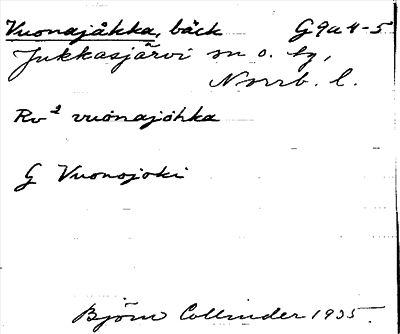 Vuonajåkka, bäck G9a4-5
Jukkasjärvi sn o. tg,
Norrb. l.
Rv² vuōnajohka
G Vuonojoki
Björn Collinder 1935.